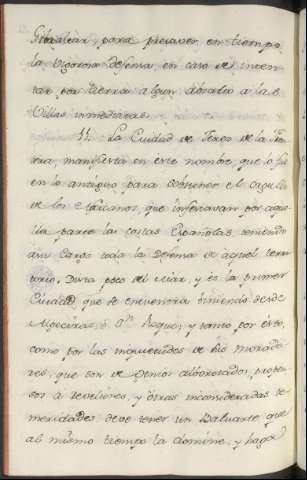 Gibraltar, para precaver, en tiempo,
la vigorosa defensa, en caso de inten-
tar por tierra algun desvalio a las
Villas inmediatas.
11. La Ciudad de Xerez de la Fron-
tera, manifiesta en este nombre, que lo fue
en lo antiguo para contener el orgullo
de los Africanos, que infestavan por aque-
lla parte las costas Españolas, teniendo
a su cargo toda la defensa de aquel terri-
torio. Dista poco del Mar, y es la primera
Ciudad, que se encuentra viniendo desde
Algeciras, ó Sn. Roque; y tanto por esto,
como por las inquietudes de sus morado-
res, que son de genio alborotador, propen-
sos à revoluciones, y otras inconsideradas te-
meridades, debe tener un Baluarte que
al mismo tiempo la domine, y haga